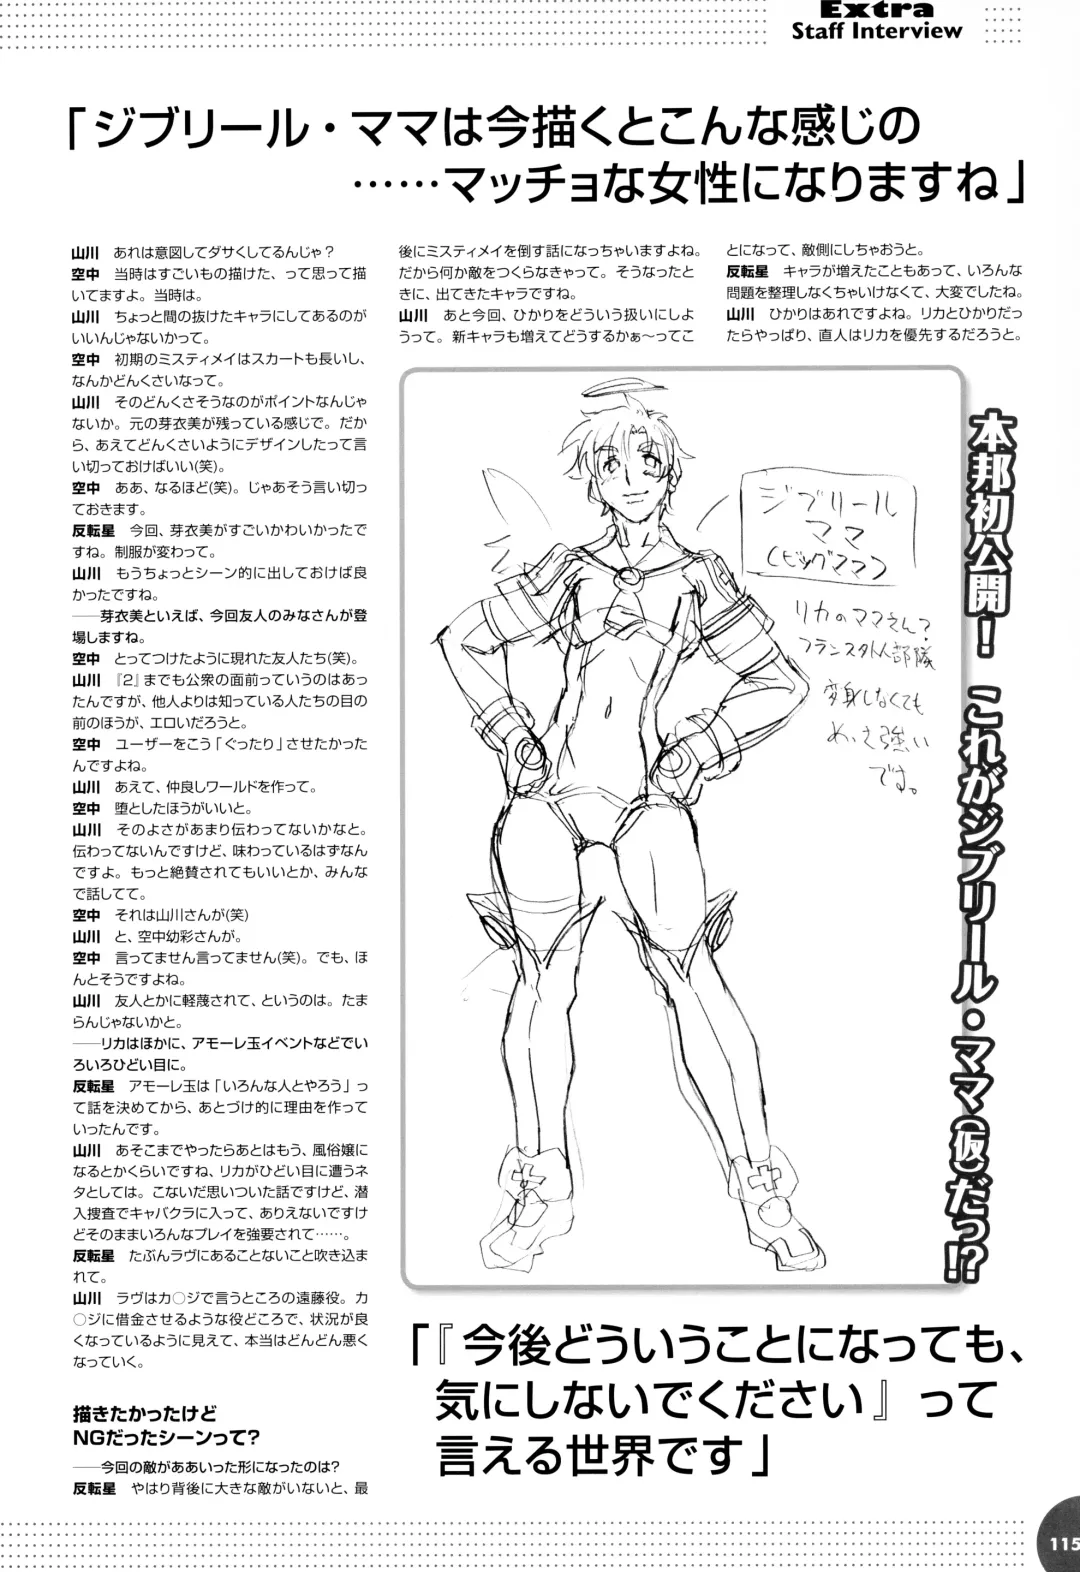 Extra
Staff Interview
「ジブリール・ママは今描くとこんな感じの
……マッチョな女性になりますね」
山川　あれは意図してダサくしてるんじゃ？
空中　当時はすごいもの描けた、って思って描
いてますよ。当時は。
山川　ちょっと間の抜けたキャラにしてあるのが
いいんじゃないかって。
空中　初期のミスティメイはスカートも長いし、
なんかどんくさいなって。
山川　そのどんくさそうなのがポイントなんじゃ
ないか。元の芽衣美が残っている感じで。だか
ら、あえてどんくさいようにデザインしたって言
い切っておけばいい(笑)。
空中　ああ、なるほど(笑)。じゃあそう言い切っ
ておきます。
反転星　今回、芽衣美がすごいかわいかったで
すね。制服が変わって。
山川　もうちょっとシーン的に出しておけば良
かったですね。
――芽衣美といえば、今回友人のみなさんが登
場しますね。
空中　とってつけたように現れた友人たち(笑)。
山川　『2』までも公衆の面前っていうのはあっ
たんですが、他人よりは知っている人たちの目の
前のほうが、エロいだろうと。
空中　ユーザーをこう「ぐったり」させたかった
んですよね。
山川　あえて、仲良しワールドを作って。
空中　堕としたほうがいいと。
山川　そのよさがあまり伝わってないかなと。
伝わってないんですけど、味わっているはずなん
ですよ。もっと絶賛されてもいいとか、みんな
で話してて。
空中　それは山川さんが(笑)
山川　と、空中幼彩さんが。
空中　言ってません言ってません(笑)。でも、ほ
んとそうですよね。
山川　友人とかに軽蔑されて、というのは。たま
らんじゃないかと。
――リカはほかに、アモーレ玉イベントなどでい
ろいろひどい目に。
反転星　アモーレ玉は「いろんな人とやろう」っ
て話を決めてから、あとづけ的に理由を作って
いったんです。
山川　あそこまでやったらあとはもう、風俗嬢に
なるとかくらいですね、リカがひどい目に遭うネ
タとしては。こないだ思いついた話ですけど、潜
入捜査でキャバクラに入って、ありえないですけ
どそのままいろんなプレイを強要されて……。
反転星　たぶんラヴにあることないこと吹き込ま
れて。
山川　ラヴはカ○ジで言うところの遠藤役。カ
○ジに借金させるような役どころで、状況が良
くなっているように見えて、本当はどんどん悪く
なっていく。
描きたかったけど
NGだったシーンって?
――今回の敵がああいった形になったのは?
反転星　やはり背後に大きな敵がいないと、最
後にミスティメイを倒す話になっちゃいますよね。
だから何か敵をつくらなきゃって。そうなったと
きに、出てきたキャラですね。
山川　あと今回、ひかりをどういう扱いにしよ
うって。新キャラも増えてどうするかぁ〜ってこ
とになって、敵側にしちゃおうと。
反転星　キャラが増えたこともあって、いろんな
問題を整理しなくちゃいけなくて、大変でしたね。
山川　ひかりはあれですよね。リカとひかりだっ
たらやっぱり、直人はリカを優先するだろうと。
ジブリール
ママ
(ビッグママ)
リカのママさん?
フランス外人部隊
変身しなくても
めっさ強い
です。
本邦初公開！　これがジブリール・ママ(仮)だっ!?
「『今後どういうことになっても、
気にしないでください』って
言える世界です」
115